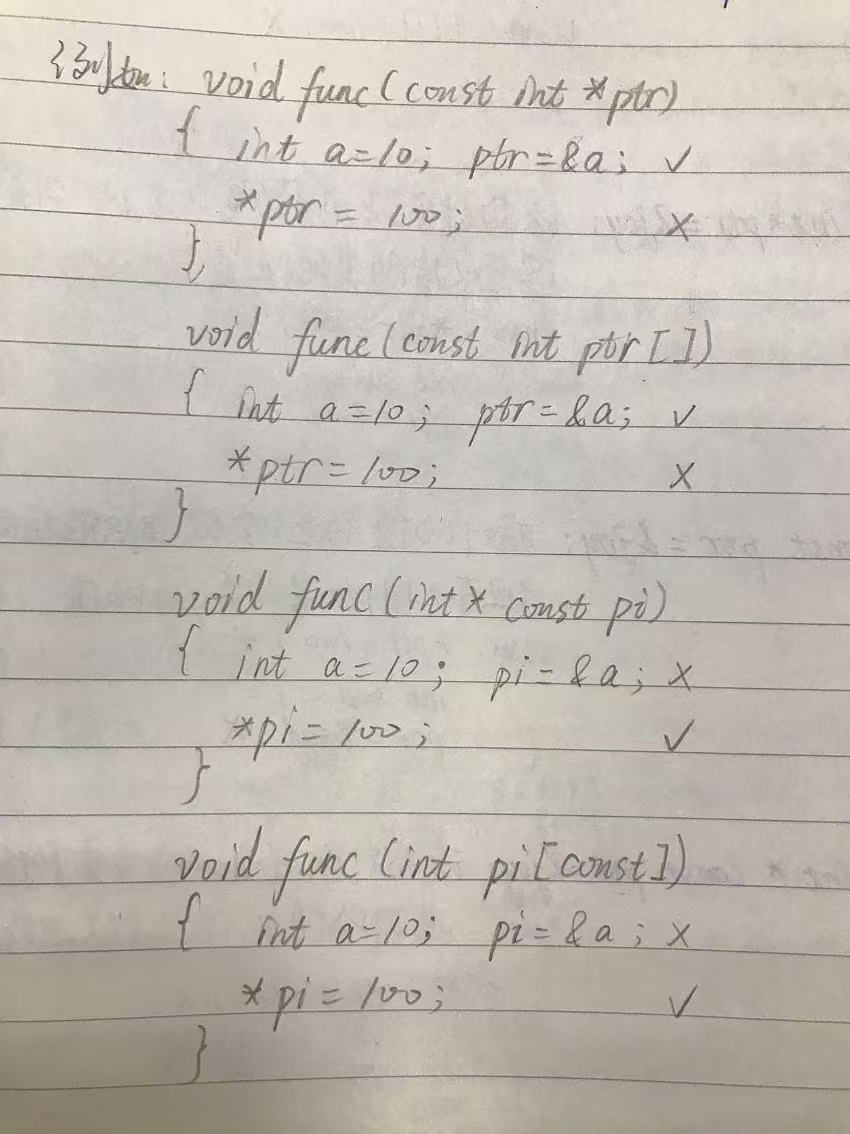 例如: void func(const int *ptr)
{ int a=10; ptr=&a; ✓
*ptr = 100; ×
},
void func(const int ptr[])
{ int a=10; ptr=&a; ✓
*ptr=100; ×
}
void func(int* const pi)
{ int a=10; pi=&a; ×
*pi=100; ✓
}
void func(int pi[const])
{ int a=10; pi=&a; ×
*pi=100; ✓
}